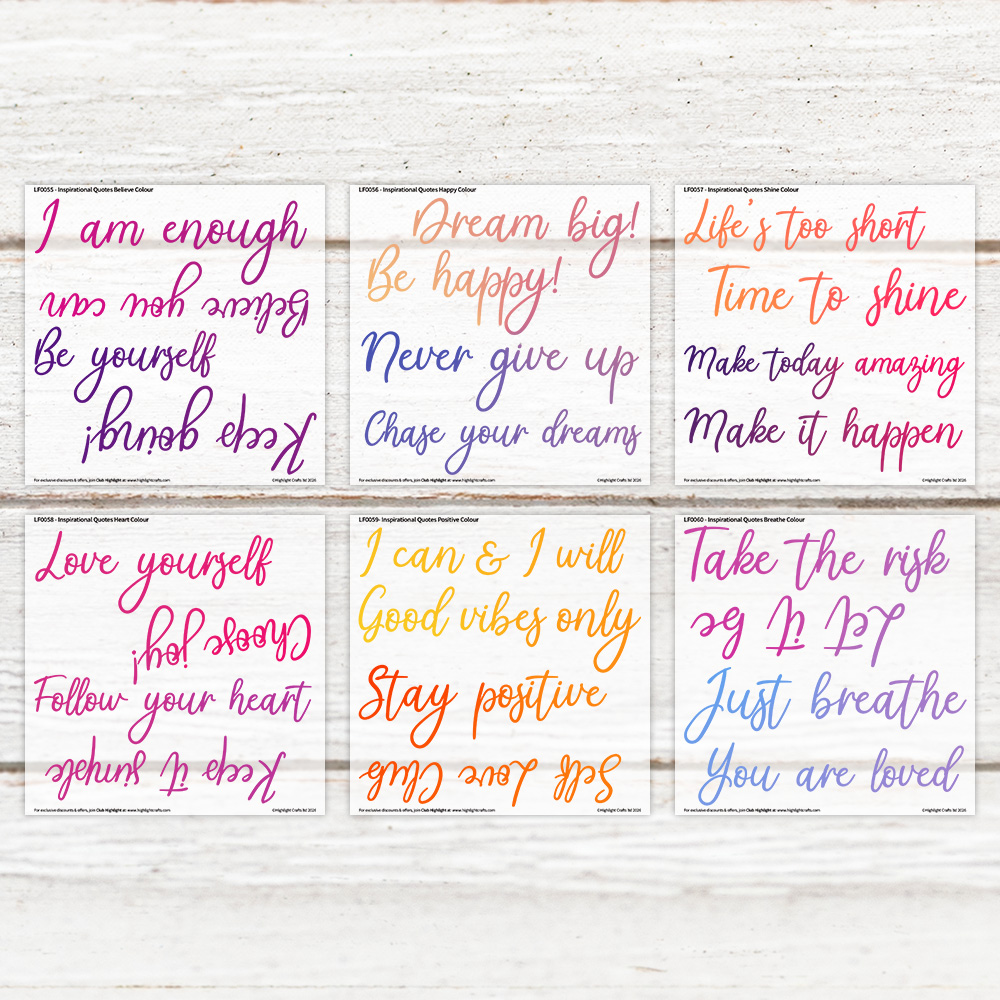 LF0055 - Inspirational Quotes Believe Colour
I am enough
Believe you can
Be yourself
Keep going!
For exclusive discounts & offers, join Club Highlight at: www.highlightcrafts.com
©Highlight Crafts ltd 2026
LF0056 - Inspirational Quotes Happy Colour
Dream big!
Be happy!
Never give up
Chase your dreams
For exclusive discounts & offers, join Club Highlight at: www.highlightcrafts.com
©Highlight Crafts ltd 2026
LF0057 - Inspirational Quotes Shine Colour
Life's too short
Time to shine
Make today amazing
Make it happen
For exclusive discounts & offers, join Club Highlight at: www.highlightcrafts.com
©Highlight Crafts ltd 2026
LF0058 - Inspirational Quotes Heart Colour
Love yourself
Choose joy!
Follow your heart
Keep it simple
For exclusive discounts & offers, join Club Highlight at: www.highlightcrafts.com
©Highlight Crafts ltd 2026
LF0059- Inspirational Quotes Positive Colour
I can & I will
Good vibes only
Stay positive
Self Love Club
For exclusive discounts & offers, join Club Highlight at: www.highlightcrafts.com
©Highlight Crafts ltd 2026
LF0060 - Inspirational Quotes Breathe Colour
Take the risk
Let it be
Just breathe
You are loved
For exclusive discounts & offers, join Club Highlight at: www.highlightcrafts.com
©Highlight Crafts ltd 2026